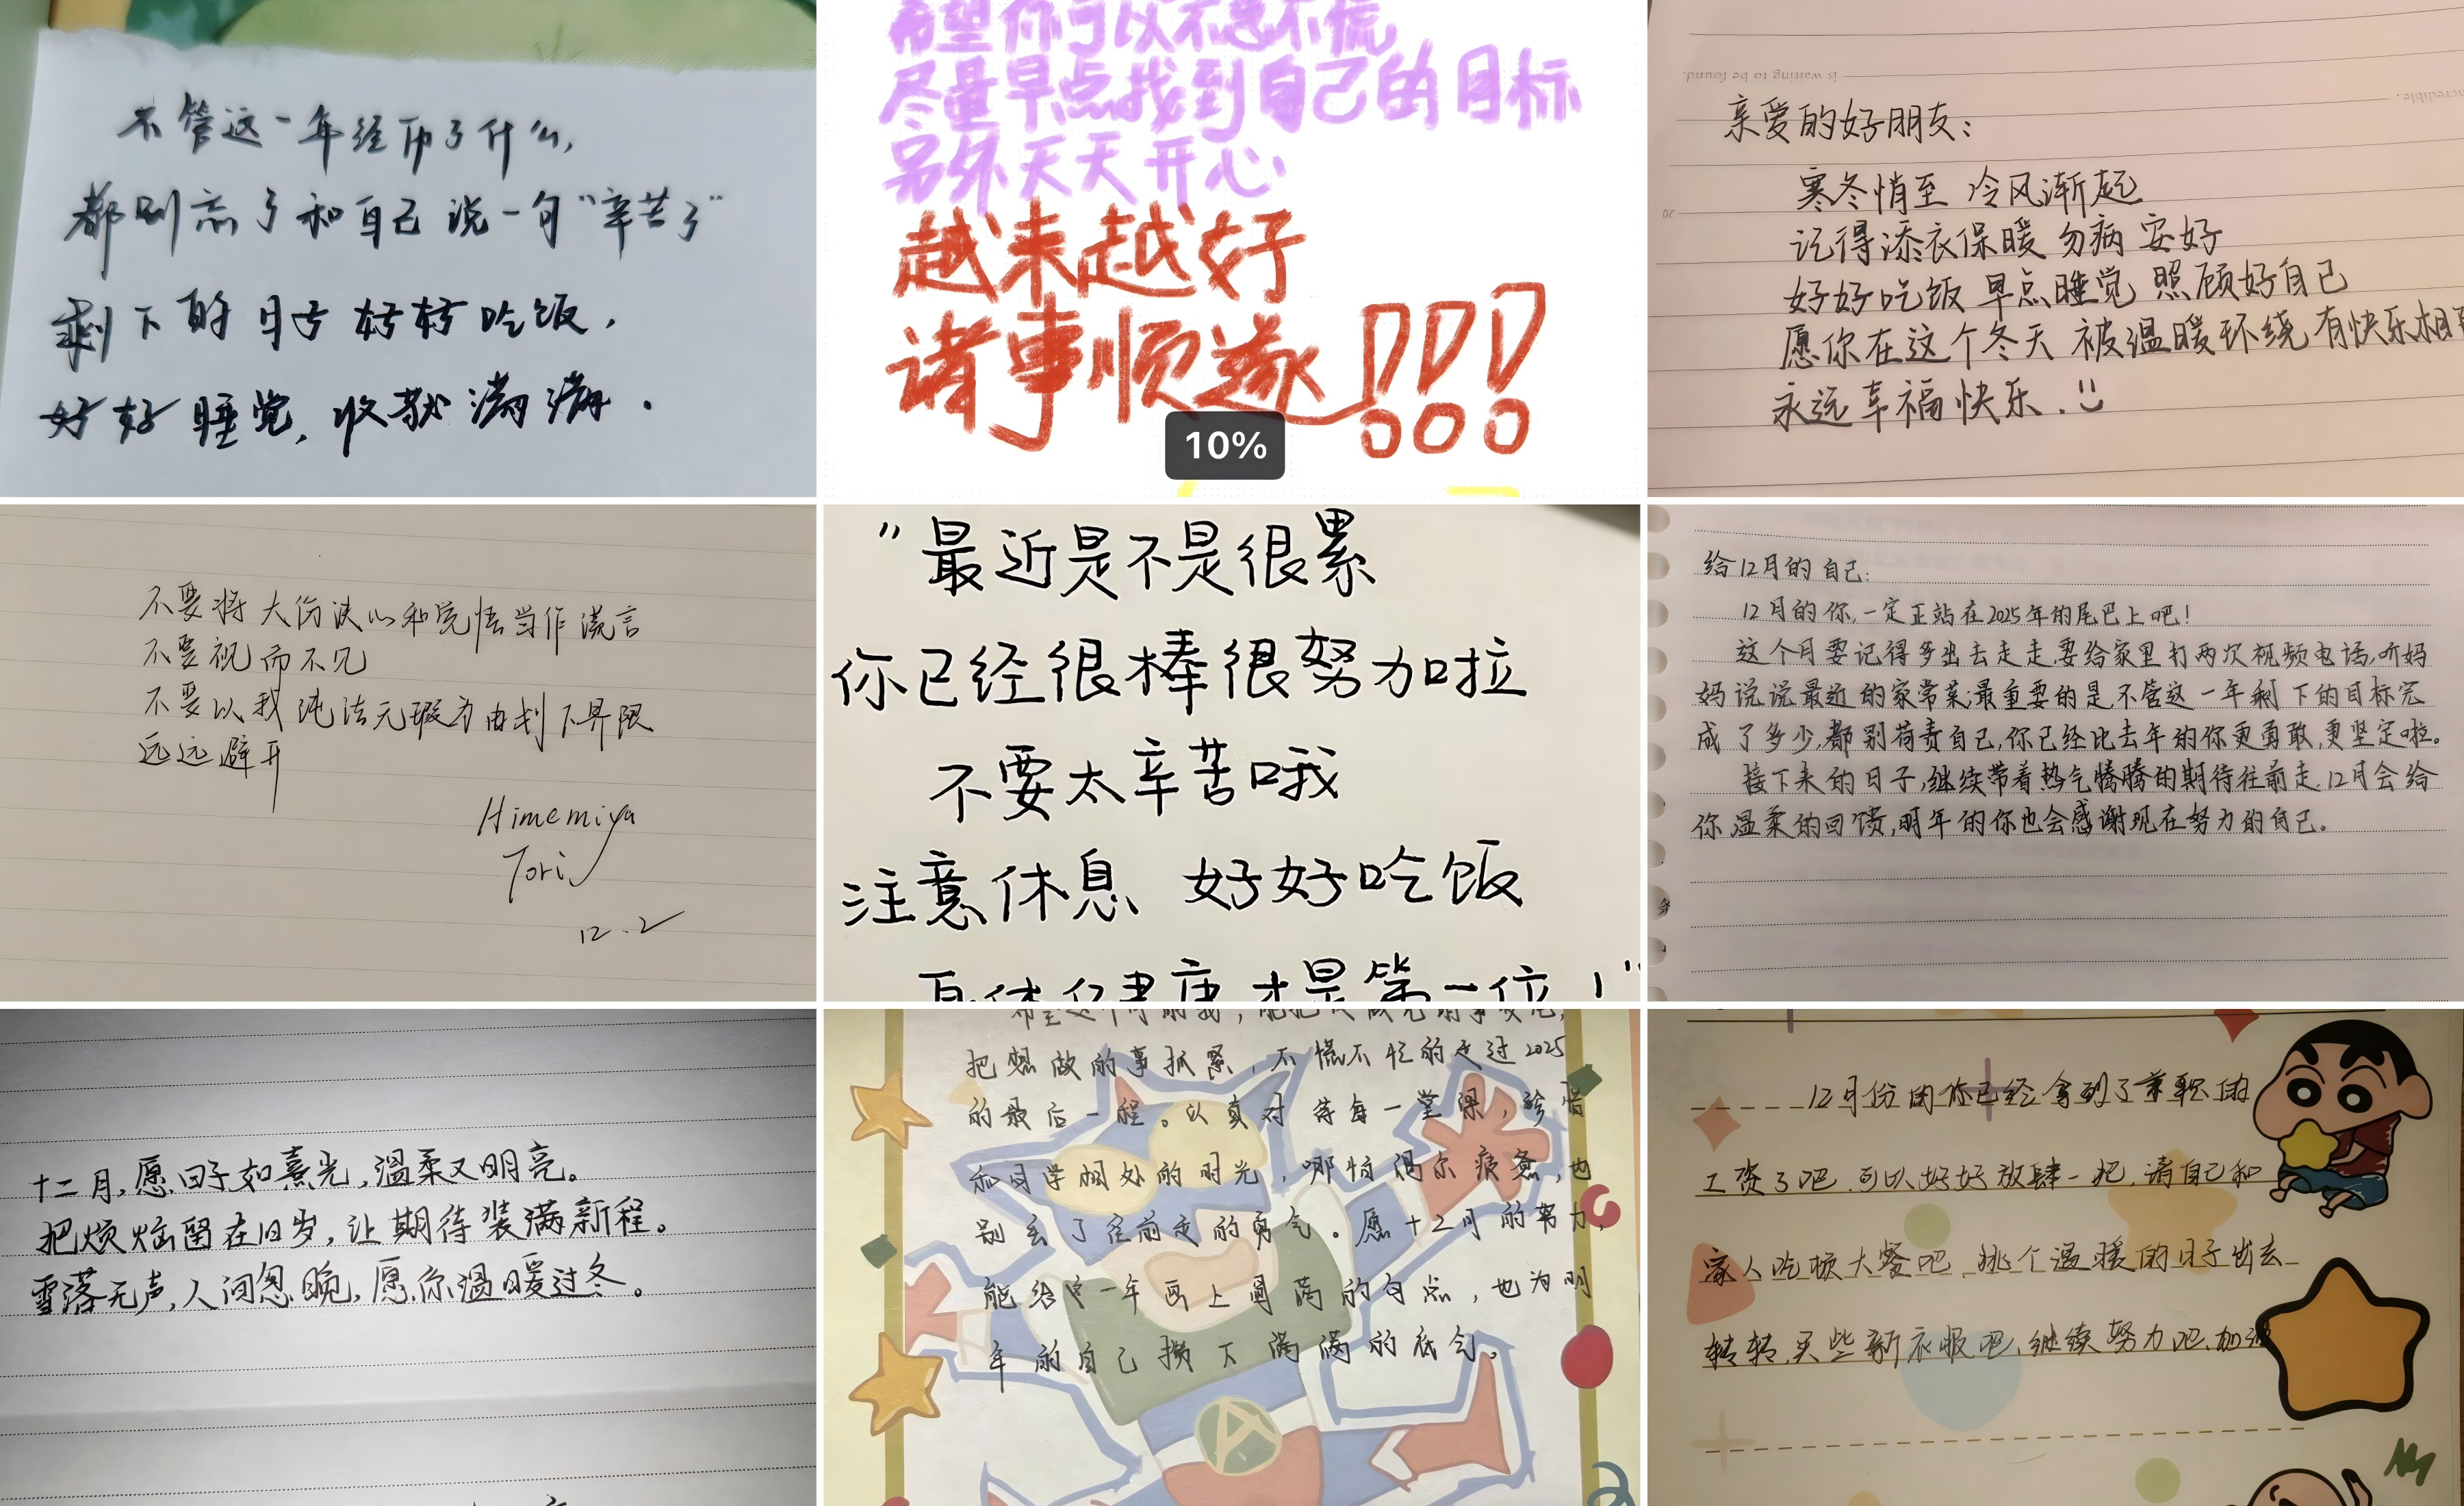 不管这一年经历了什么,
都别忘了和自己说一句“辛苦了”
剩下的日子好好吃饭,
好好睡觉,收获满满.
希望你可以不急不慌
尽量早点找到自己的目标
另外天天开心
越来越好
诸事顺遂!!!
10%
is waiting to be found.
incredible.
20
亲爱的好朋友:
寒冬悄至 冷风渐起
记得添衣保暖 勿病安好
好好吃饭 早点睡觉 照顾好自己
愿你在这个冬天 被温暖环绕 有快乐相
永远幸福快乐.
不要将大份决心和觉悟当作谎言
不要视而不见
不要以我纯洁无瑕为由划下界限
远远避开
Himemiya
Tori
12.2
"最近是不是很累
你已经很棒很努力啦
不要太辛苦哦
注意休息 好好吃饭
身体健康才是第一位!"
给12月的自己:
12月的你,一定正站在2025年的尾巴上吧!
这个月要记得多出去走走,要给家里打两次视频电话,听妈
妈说说最近的家常菜;最重要的是,不管这一年剩下的目标完
成了多少,都别苛责自己,你已经比去年的你更勇敢,更坚定啦。
接下来的日子,继续带着热气腾腾的期待往前走,12月会给
你温柔的回馈,明年的你也会感谢现在努力的自己。
十二月,愿日子如熹光,温柔又明亮。
把烦恼留在旧岁,让期待装满新程。
雪落无声,人间忽晚,愿你温暖过冬。
希望这个月的我,能把
把想做的事抓紧,不慌不忙的走过2025
的最后一程。认真对待每一堂课,珍惜
和同学相处的时光,哪怕偶尔疲惫,也
别丢了往前走的勇气。愿十二月的努力,
能给这一年画上圆满的句点,也为明
年的自己攒下满满的底气。
12月份的你已经拿到了兼职的
工资了吧,可以好好放肆一把,请自己和
家人吃顿大餐吧,挑个温暖的日子出去
转转,买些新衣服吧,继续努力吧,加油